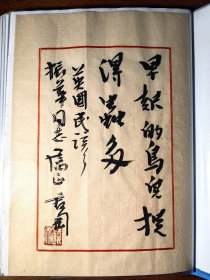 早起的鸟儿捉
得虫多
英国民谚
振华同志属正